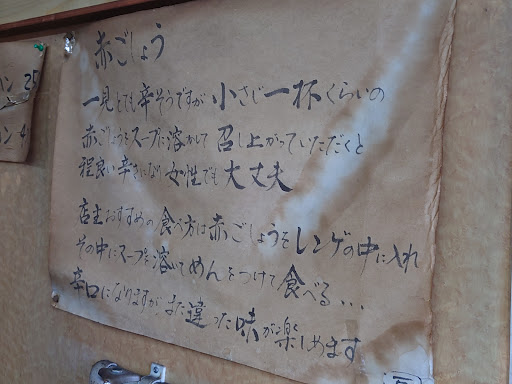 赤ごしょう
一見とても辛そうですが小さじ一杯くらいの
赤ごしょうをスープに溶かして召し上がっていただくと
程良い辛さになり女性でも大丈夫
店主おすすめの食べ方は赤ごしょうをレンゲの中に入れ
その中にスープを溶いてめんをつけて食べる...
辛口になりますがまた違った味が楽しめます
ン 25